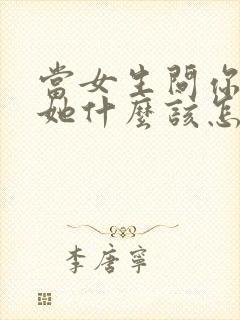 當女生問你
她什麼該怎
李唐寧